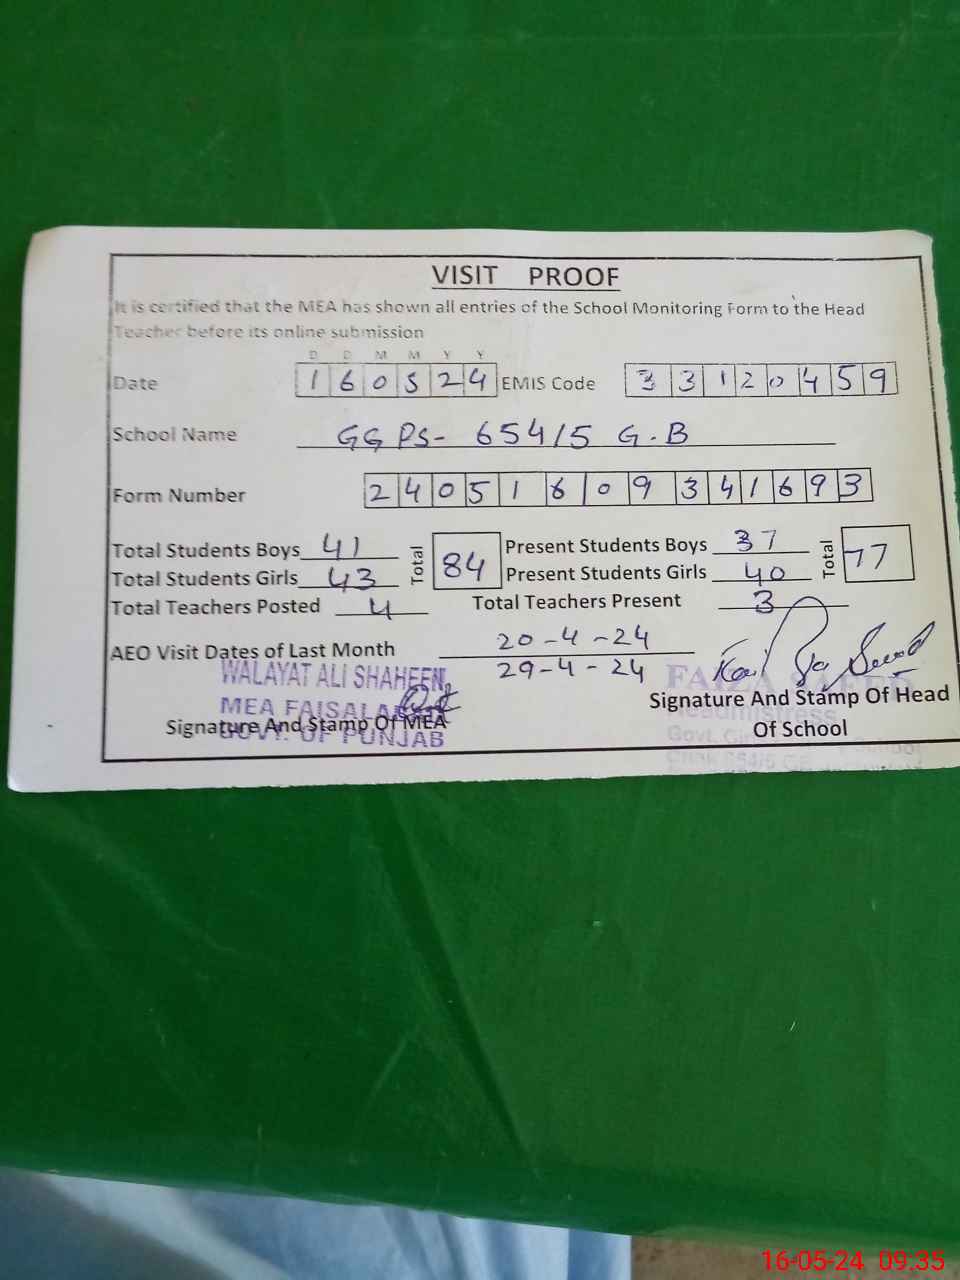 VISIT PROOF
It is certified that the MEA has shown all entries of the School Monitoring Form to the Head
Teacher before its online submission
D D M M Y Y
Date 160524 EMIS Code 33120459
School Name GGPS- 654/5 G.B
Form Number 24051609341693
Total Students Boys 41 Total 84 Present Students Boys 37 Total 77
Total Students Girls 43 Present Students Girls 40
Total Teachers Posted 4 Total Teachers Present 3
AEO Visit Dates of Last Month 20-4-24
29-4-24
WALAYAT ALI SHAHEEN
MEA FAISALABAD
GOVT. OF PUNJAB
Signature And Stamp Of MEA
FAIZA SAEED
Headmistress
Govt. Girls School
Chak 654/5
Signature And Stamp Of Head
Of School
16-05-24 09.35